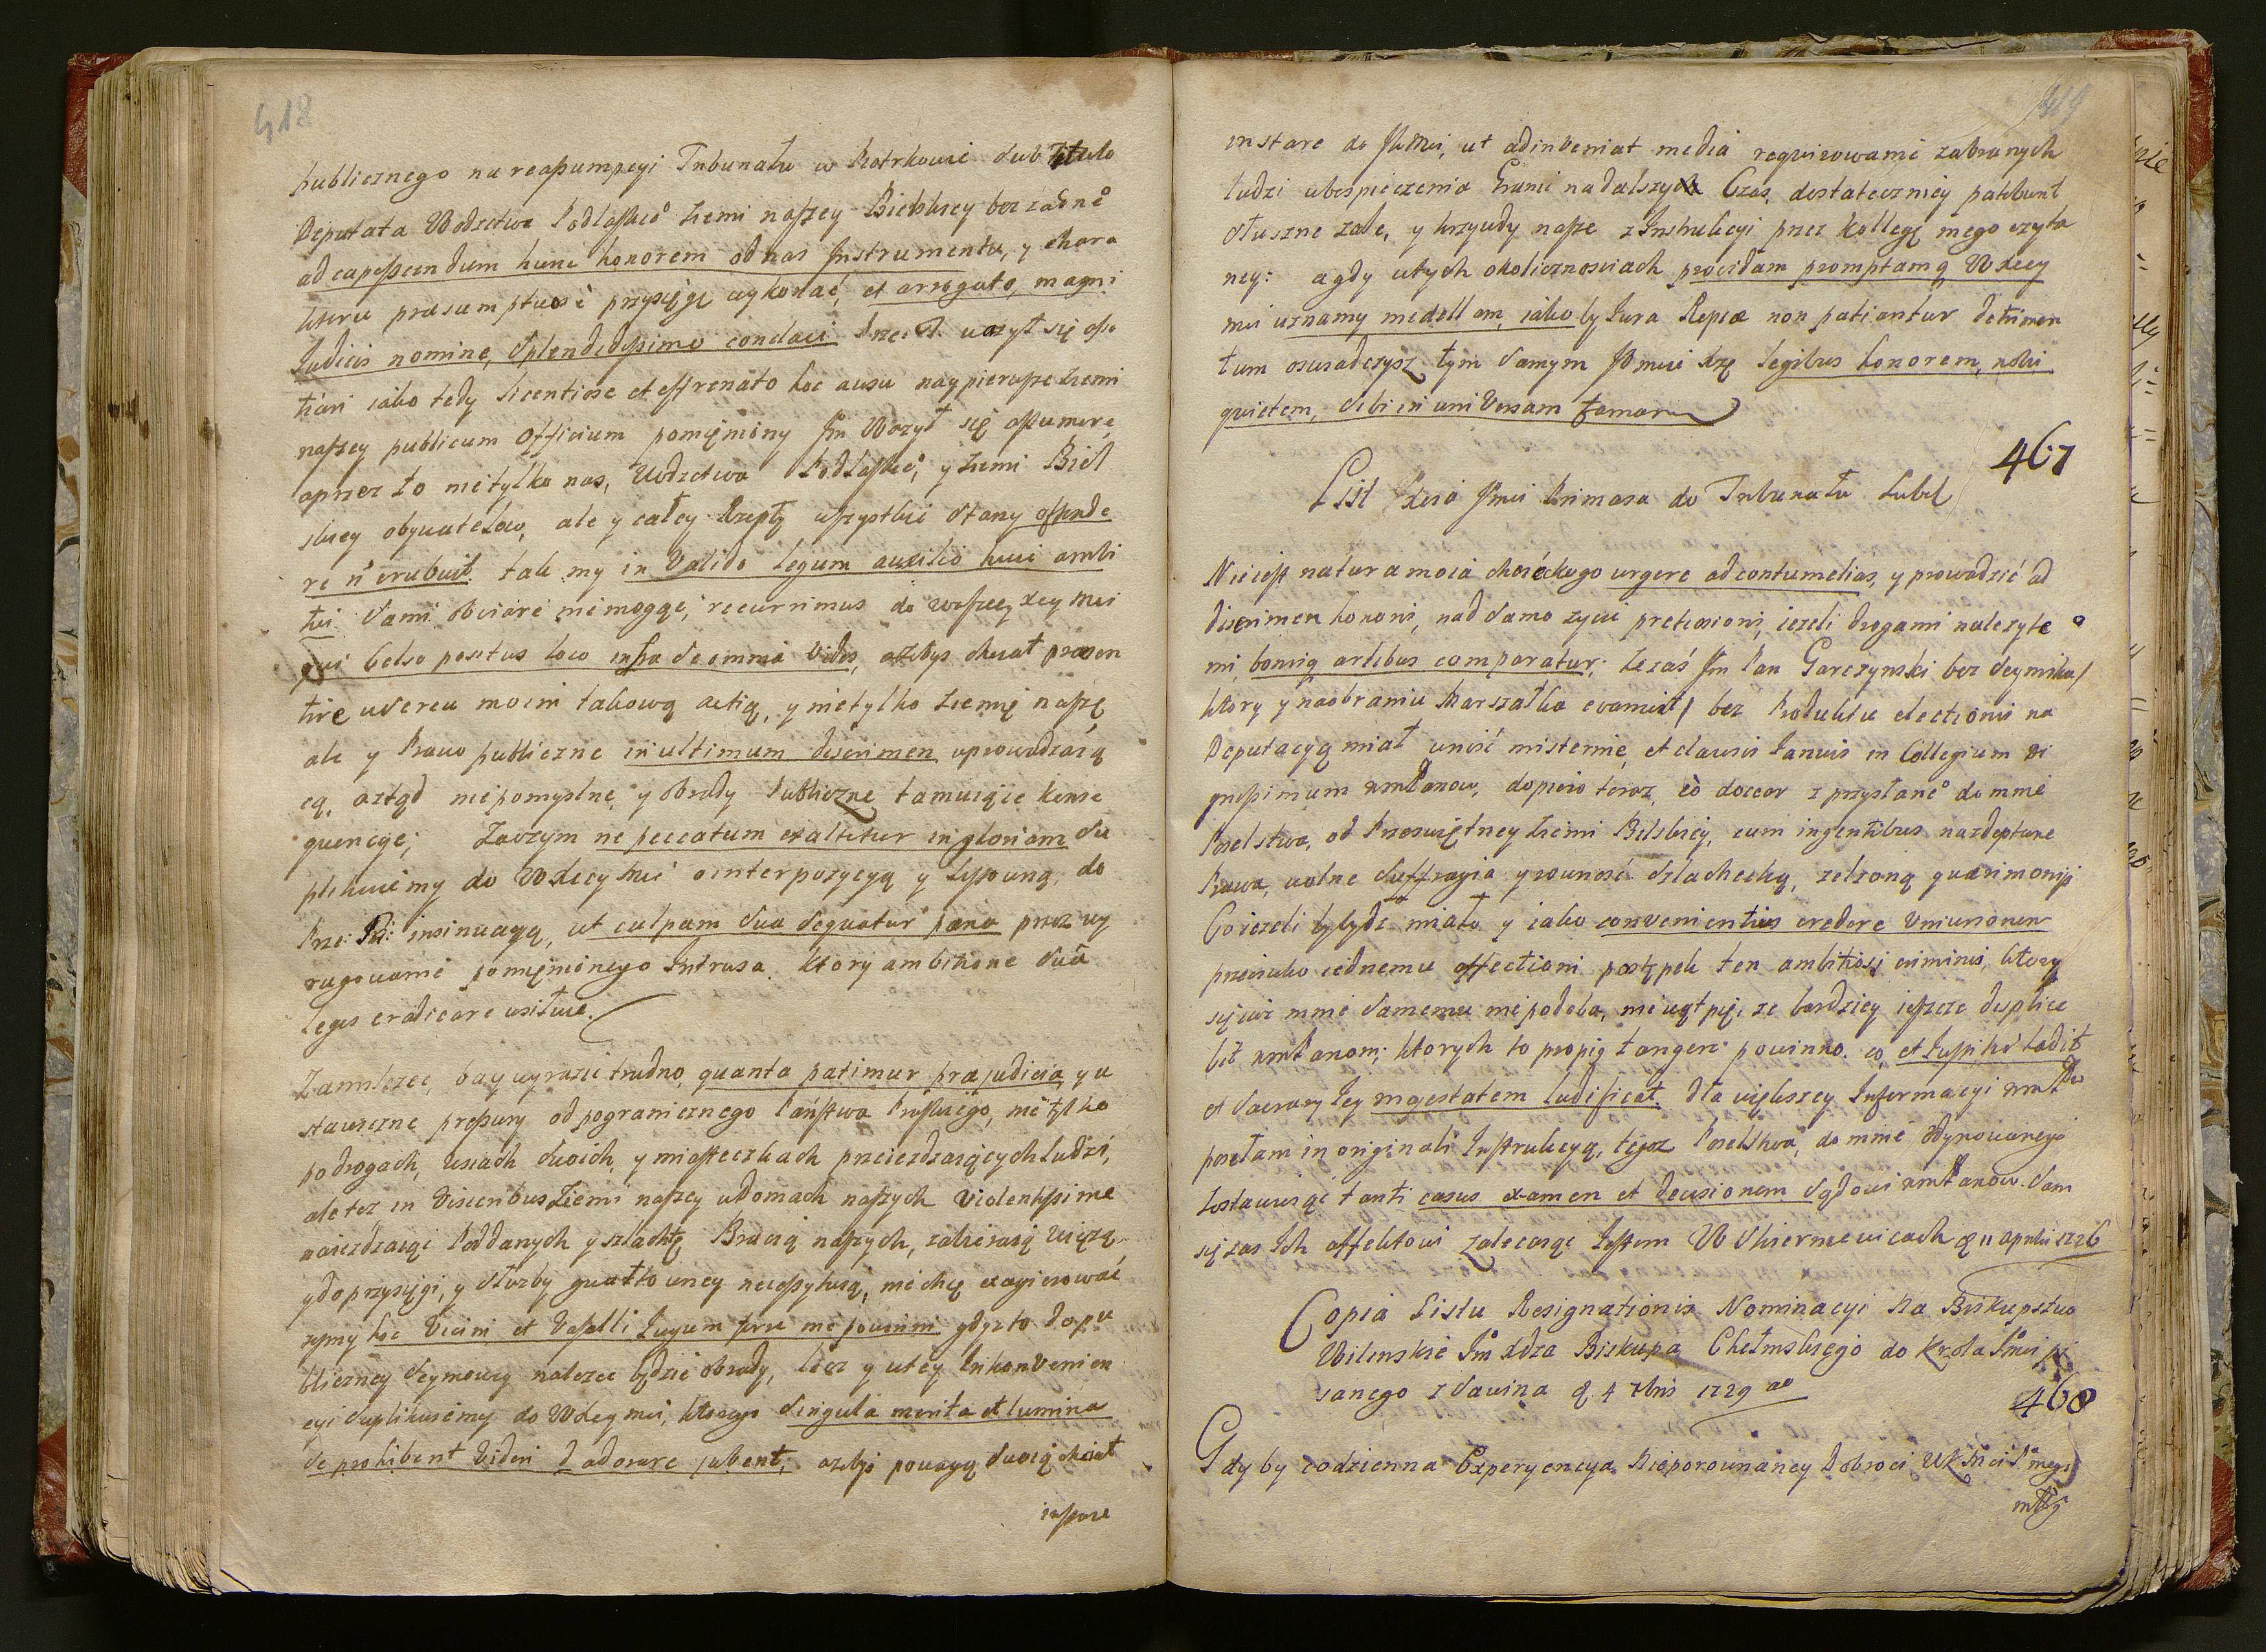 418
publicznego na reaßumpcyi Trybunału w Piotrkowie sub titulo
Deputata Wodztwa Podlaskieo Ziemi naszey Bielskiey bez żadneo
ad capeßzendum hunc honorem od nas Instrumentu, y chara
kteru præsumptuose przysięgę wykonać, et arrogato, magni
Judicis nomine, splendidißimo conclavi Prze: T. ważył się aße
jako tedy licentiose et effrenato hoc ausu naypierwsze Ziemi
naszey publicum Officium pomięniony Im Ważył się aßumere,
a przez to nie tylko nas, Wodztwa Podlaskieo, y Ziemi Biel
skiey obywatelow, ale y całey Rzeptey wszystkie stany offende
re n erubuit. tak my in valido legum auxilio huic ambi
tui sami obviare nie mogąc, recurrimus do waszey Xcey Mci
qui celso positus loco infra se omnia vides, ażebys chciał præsen
tire w sercu moim takową actią, y nie tylko Ziemię naszę
ale y Prawo publiczne in ultimum discrimen wprowadzaią
cą, a ztąd nie pomyslne, y obrady Publiczne tamuiące konse
quencye; Zaczym ne peccatum exaltetur in gloriam su
plikuiemy do WXcey Mci o interpozycyą y listowną, do
Prze: Tri: insinuacyą, ut culpam sua sequatur pæna przez wy
rugowanie pomięnionego Intrusa. który ambitione sua
leges eradicare usituie.
Zamilczec, ba y wyrazic trudno, quanta patimur præjudicia, y u
stawiczne preßury od pogranicznego Państwa Pruskiego, nie tylko
po drogach, wsiach swoich, y miasteczkach przeiezdzaiących ludzi,
ale tez in visceribus Ziemi naszey w domach naszych violentißime
naiezdzaiąc Poddanych y szlachtę Bracią naszych, zabieraią więzą
y do przysięgi, y słuzby gwałtowney neceßytuią, nie chcę exagerować
zesmy hoc vicini et Vasalli Jugum ferre nie powinni gdyz to do pu
bliczney Seymowey nalezec będzie obrady, lecz y w tey Inkonvenien
cyi suplikuiemy do WXcey Mci, ktorego singula merita et lumina
se prohibent videri & adorare jubent; azebys powagą swoią chciał
instare
419
instare do JkMci, ut adinveniat media requirowanie zabranych
ludzi ubespieczenia Granic na dalszy Czas, dostateczniey patebunt
słuszne zale, y krzywdy nasze z Instrukcyi przez Kollegę mego czyta
ney: a gdy w tych okolicznosciach providam promptamq WXcey
Mci uznamy medellam, iako by Jura Reipcæ non patiantur detrimen
tum oswiadczysz tym samym JOMci Xze legibus honorem, nobis
quietem, sibi in universam famam
467
List Xcia Jmci Primasa do Trybunału Lubel
Nie iest natura moia choć kogo urgere ad contumelias, y prowadzić ad
discrimen honoris, nad samo zycie pretiosioris, iezeli drogami nalezyte
mi, bonisq artibus comparatur; Ze zaś Jm Pan Garczynski bez Seymiku/
ktory y na obraniu Marszałka evanuit/ bez Produktu electionis na
Deputacyą miał unisć misternie, et clausis Januis in Collegium Di
gnißimum wmPanow, dopiero teraz, eò doceor z przysłaneo do mnie
Poselstwa, od Przeswiętney Ziemi Bilskiey, cum ingentibus na zdeptane
Prawa, wolne suffragia y rownosć szlachecką, zelzoną quærimonijs
Co iezeli by bydz miało y iako convenientius credere Uniwnonem
przeciwko iednemu affectioni postępek ten ambitiosi criminis, ktory
się iuz mnie samemu nie podoba, nie wątpię, ze bardziey ieszcze displice
bit wmPanom; ktorych to propiq tangere powinno, co et Justitiæ lædit
et sacram Jey majestatem ludificat. Dla większey Informacyi wmPw
posełam in originali Instrukcyą, tegoz Poselstwa, do mnie ordynowanego
Zostawuiąc tanti casus examen et decisionem Sądowi wmPanow. Sam
się zas Ich affektowi zalecaiąc Jestem W Skierniewicach d 11 aprilis 1726
Copia Listu Resignationis Nominacyi na Biskupstwo
Wilenskie Jm Xdza Biskupa Chełmskiego do Krola Jmci pi
sanego z Sawina d 4 7bris 1729 ao
468
Gdy by codzienna Experyencya Nieporownaney Dobroci WKMci P mego
młłg